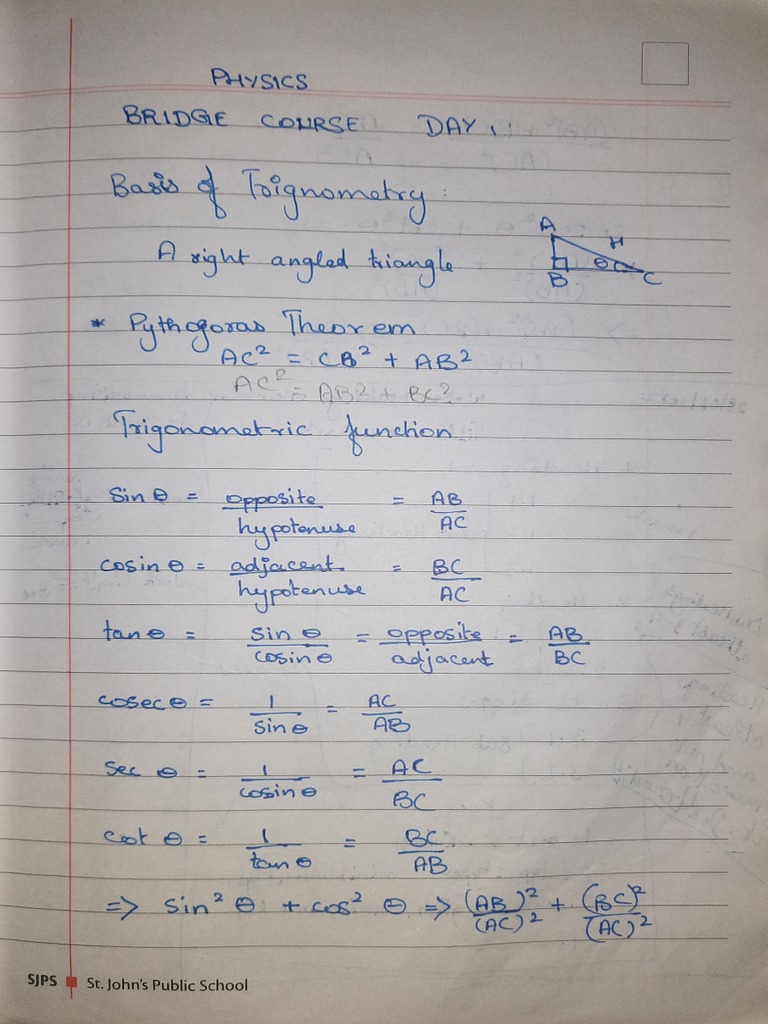 PHYSICS
BRIDGE COURSE DAY 1.
Basis of Toignometry :
A right angled triangle
A
H
B
θ
C
* Pythgoras Theorem
AC² = CB² + AB²
AC² = AB² + BC²
Trigonometric function
Sin θ = opposite/hypotenuse = AB/AC
cosin θ = adjacent/hypotenuse = BC/AC
tan θ = sin θ/cosin θ = opposite/adjacent = AB/BC
cosec θ = 1/sin θ = AC/AB
sec θ = 1/cosin θ = AC/BC
cot θ = 1/tan θ = BC/AB
=> sin² θ + cos² θ => (AB)²/(AC)² + (BC)²/(AC)²
SJPS St. John's Public School